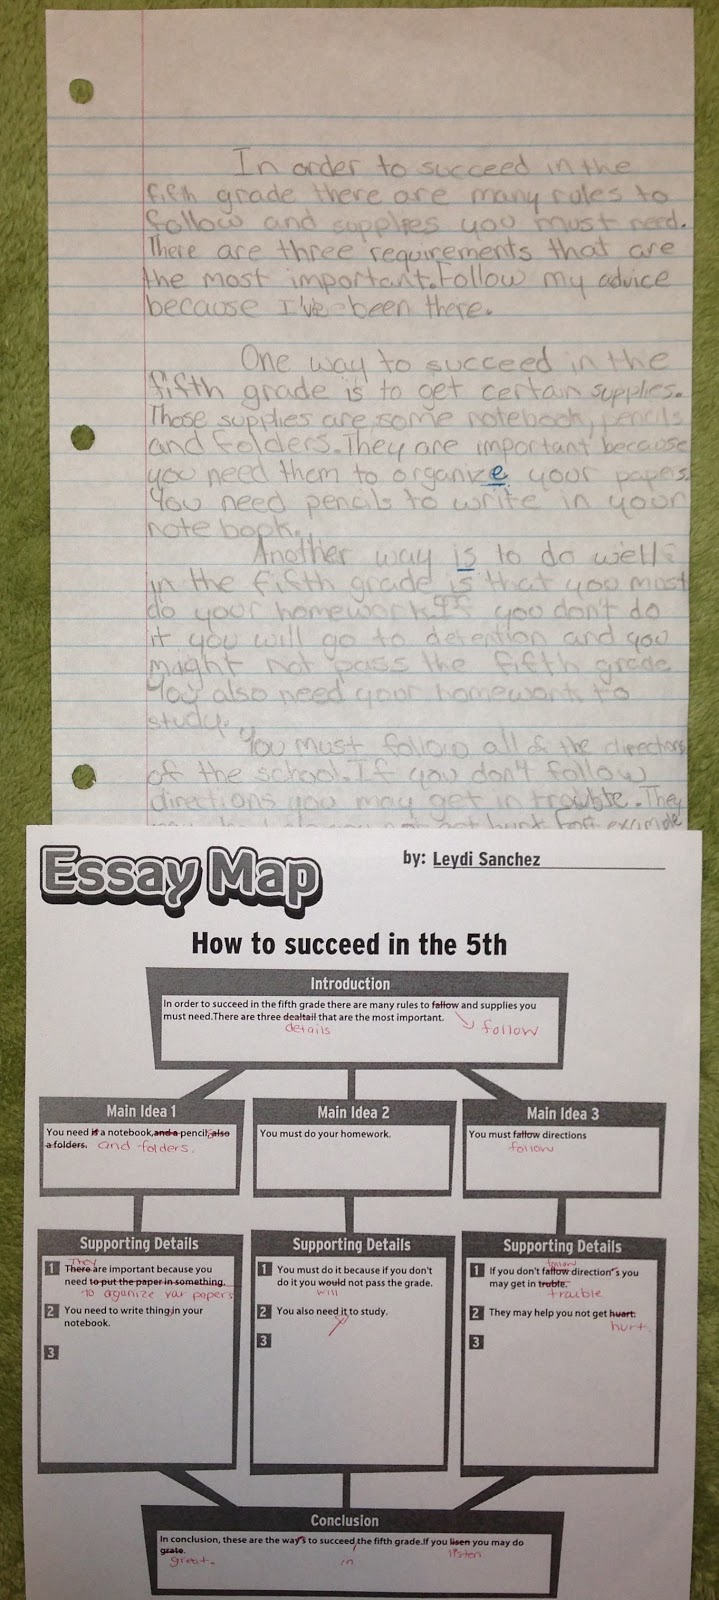 In order to succeed in the
fifth grade there are many rules to
follow and supplies you must need.
There are three requirements that are
the most important. Follow my advice
because I've been there.
One way to succeed in the
fifth grade is to get certain supplies.
Those supplies are some notebook, pencils
and folders. They are important because
you need them to organize your papers.
You need pencils to write in your
note book.
Another way is to do well
in the fifth grade is that you must
do your homework. If you don't do
it you will go to detention and you
might not pass the fifth grade
You also need your homework to
study.
You must follow all of the directions
of the school. If you don't follow
directions you may get in trouble. They
not get hurt for example
Essay Map
by: Leydi Sanchez
How to succeed in the 5th
Introduction
In order to succeed in the fifth grade there are many rules to fallow and supplies you
must need.There are three dealtail that are the most important.
details
follow
Main Idea 1
You need is a notebook,and a pencil,also
a folders. and folders.
Main Idea 2
You must do your homework.
Main Idea 3
You must fallow directions
follow
Supporting Details
They
1 There are important because you
need to put the paper in something.
to aganize your papers
2 You need to write thing in your
notebook.
3
Supporting Details
1 You must do it because if you don't
do it you would not pass the grade.
will
2 You also need it to study.
3
Supporting Details
follow
1 If you don't fallow direction's you
may get in truble.
trouble
2 They may help you not get huart.
hurt
3
Conclusion
In conclusion, these are the way's to succeed the fifth grade.If you lisen you may do
grate.
great.
in
listen